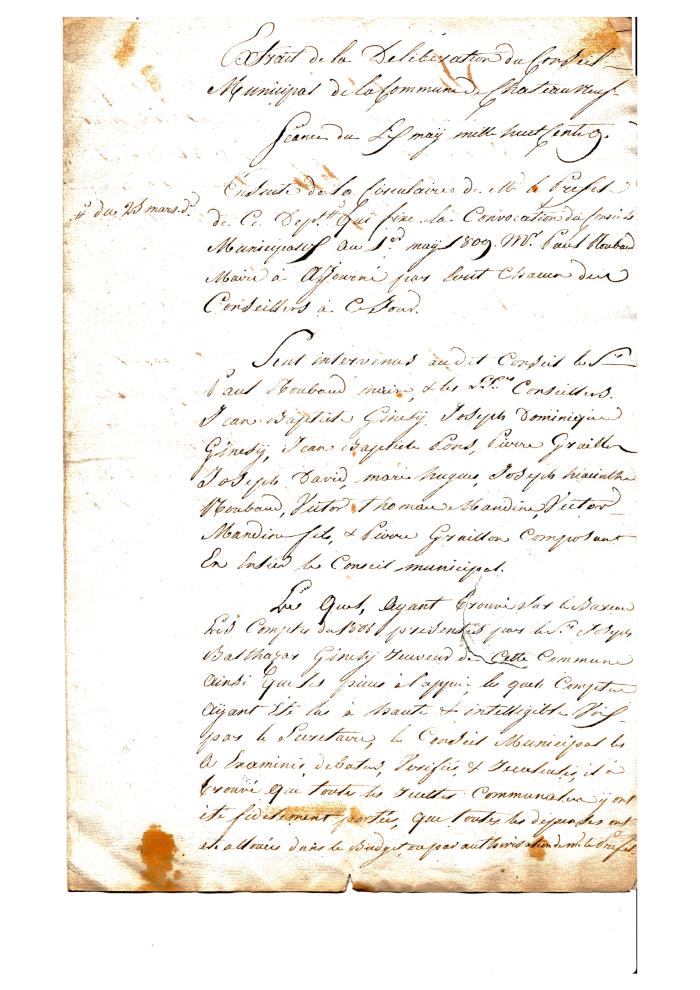 Extrait de la Deliberation du Conseil
Municipal de la Commune de Chateauneuf.
Séance du may mille huit Cents 9.
Ensuite de la Circulaire de Mr le Prefet
du 23 mars dr
de Ce Deptt qui fixe la Convocation du Conseils
Municipaux au 1er may 1809 Mr Paul Roubaud
Maire à Ajourné par tout Chacun des
Conseillers à Ce Jour.
Sont intervenus au dit Conseil le Sr
Paul Roubaud maire, & les Srs Conseillers.
Jean Baptiste Ginesy, Joseph Dominique
Ginesy, Jean Baptiste Pons, Pierre Graillon
Joseph David, marc hugues, Joseph hiacinthe
Roubaud, Victor thomas Mandine, Victor
Mandine fils, & Pierre Graillon Composant
En Entier le Conseil municipal.
Les Quels, Ayant trouvé Sur le Bureau
Les Comptes du 1808 présentés par le Sr Joseph
Balthazar Ginesy receveur de Cette Commune
Ainsi Que les pieces à l'appui, les quels Comptes
Ayant Eté lus à haute & intelligible Voix
par le Secretaire, le Conseil Municipal les
A Examinés, debatus, Verifiés, & il a
trouvé Que toutes les recettes Communales y ont
été fidelement portées, que toutes les depenses ont
été allouées dans le Budget, ou par authorisation de mr le Prefet